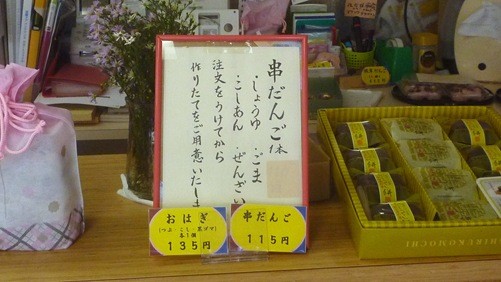 串だんご1本
・しょうゆ ・ごま
・こしあん ・ぜんざい
注文をうけてから
作りたてをご用意いたしま
おはぎ
(つぶ・こし・黒ゴマ)
各1個
135円
串だんご
115円
SHIRUKOMOCHI